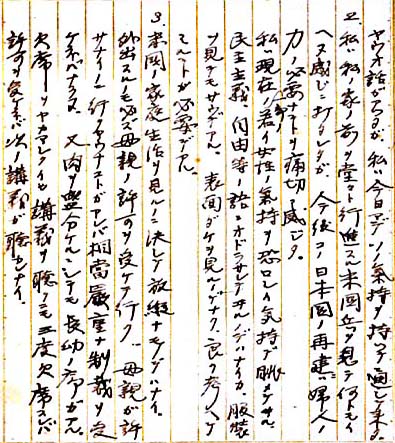 ヤウナ話デアルガ、私ハ今日マデソノ気持ヲ持ツテ通シテ来タ。
2、私ハ私ノ家ノ前ヲ堂々ト行進スル米国兵ヲ見テ何トモイ
ヘヌ感ジニ打タレタガ、今後コノ日本国ノ再建ハ婦人ノ
力ノ必要ナコトヲ痛切ニ感ジタ。
私ハ現在ノ若イ女性ノ気持ヲ恐ロシイ気持デ眺メテヰル。
民主主義、自由等ノ語ニオドラサレテヰルノデハナイカ。服装
ヲ見テモサウデアル。表面ダケヲ見ルノデナク、良ク考ヘテ
ミルコトガ必要デアル。
3、米国ノ家庭生活ヲ見ルノニ決シテ放縦ナモノデハナイ。
外出スルニモ必ズ母親ノ許可ヲ受ケテ行ク。母親ガ許
サナイノニ行クヤウナコトガアレバ相当厳重ナ制裁ヲ受
ケネバナラヌ。又肉ヲ盛分ケルニシテモ長幼ノ序ガアル。
欠席ヲヤカマシクイヒ講義ヲ聴クニモ二度欠席スレバ
許可ヲ受ケネバ次ノ講義ガ聴カレナイ。